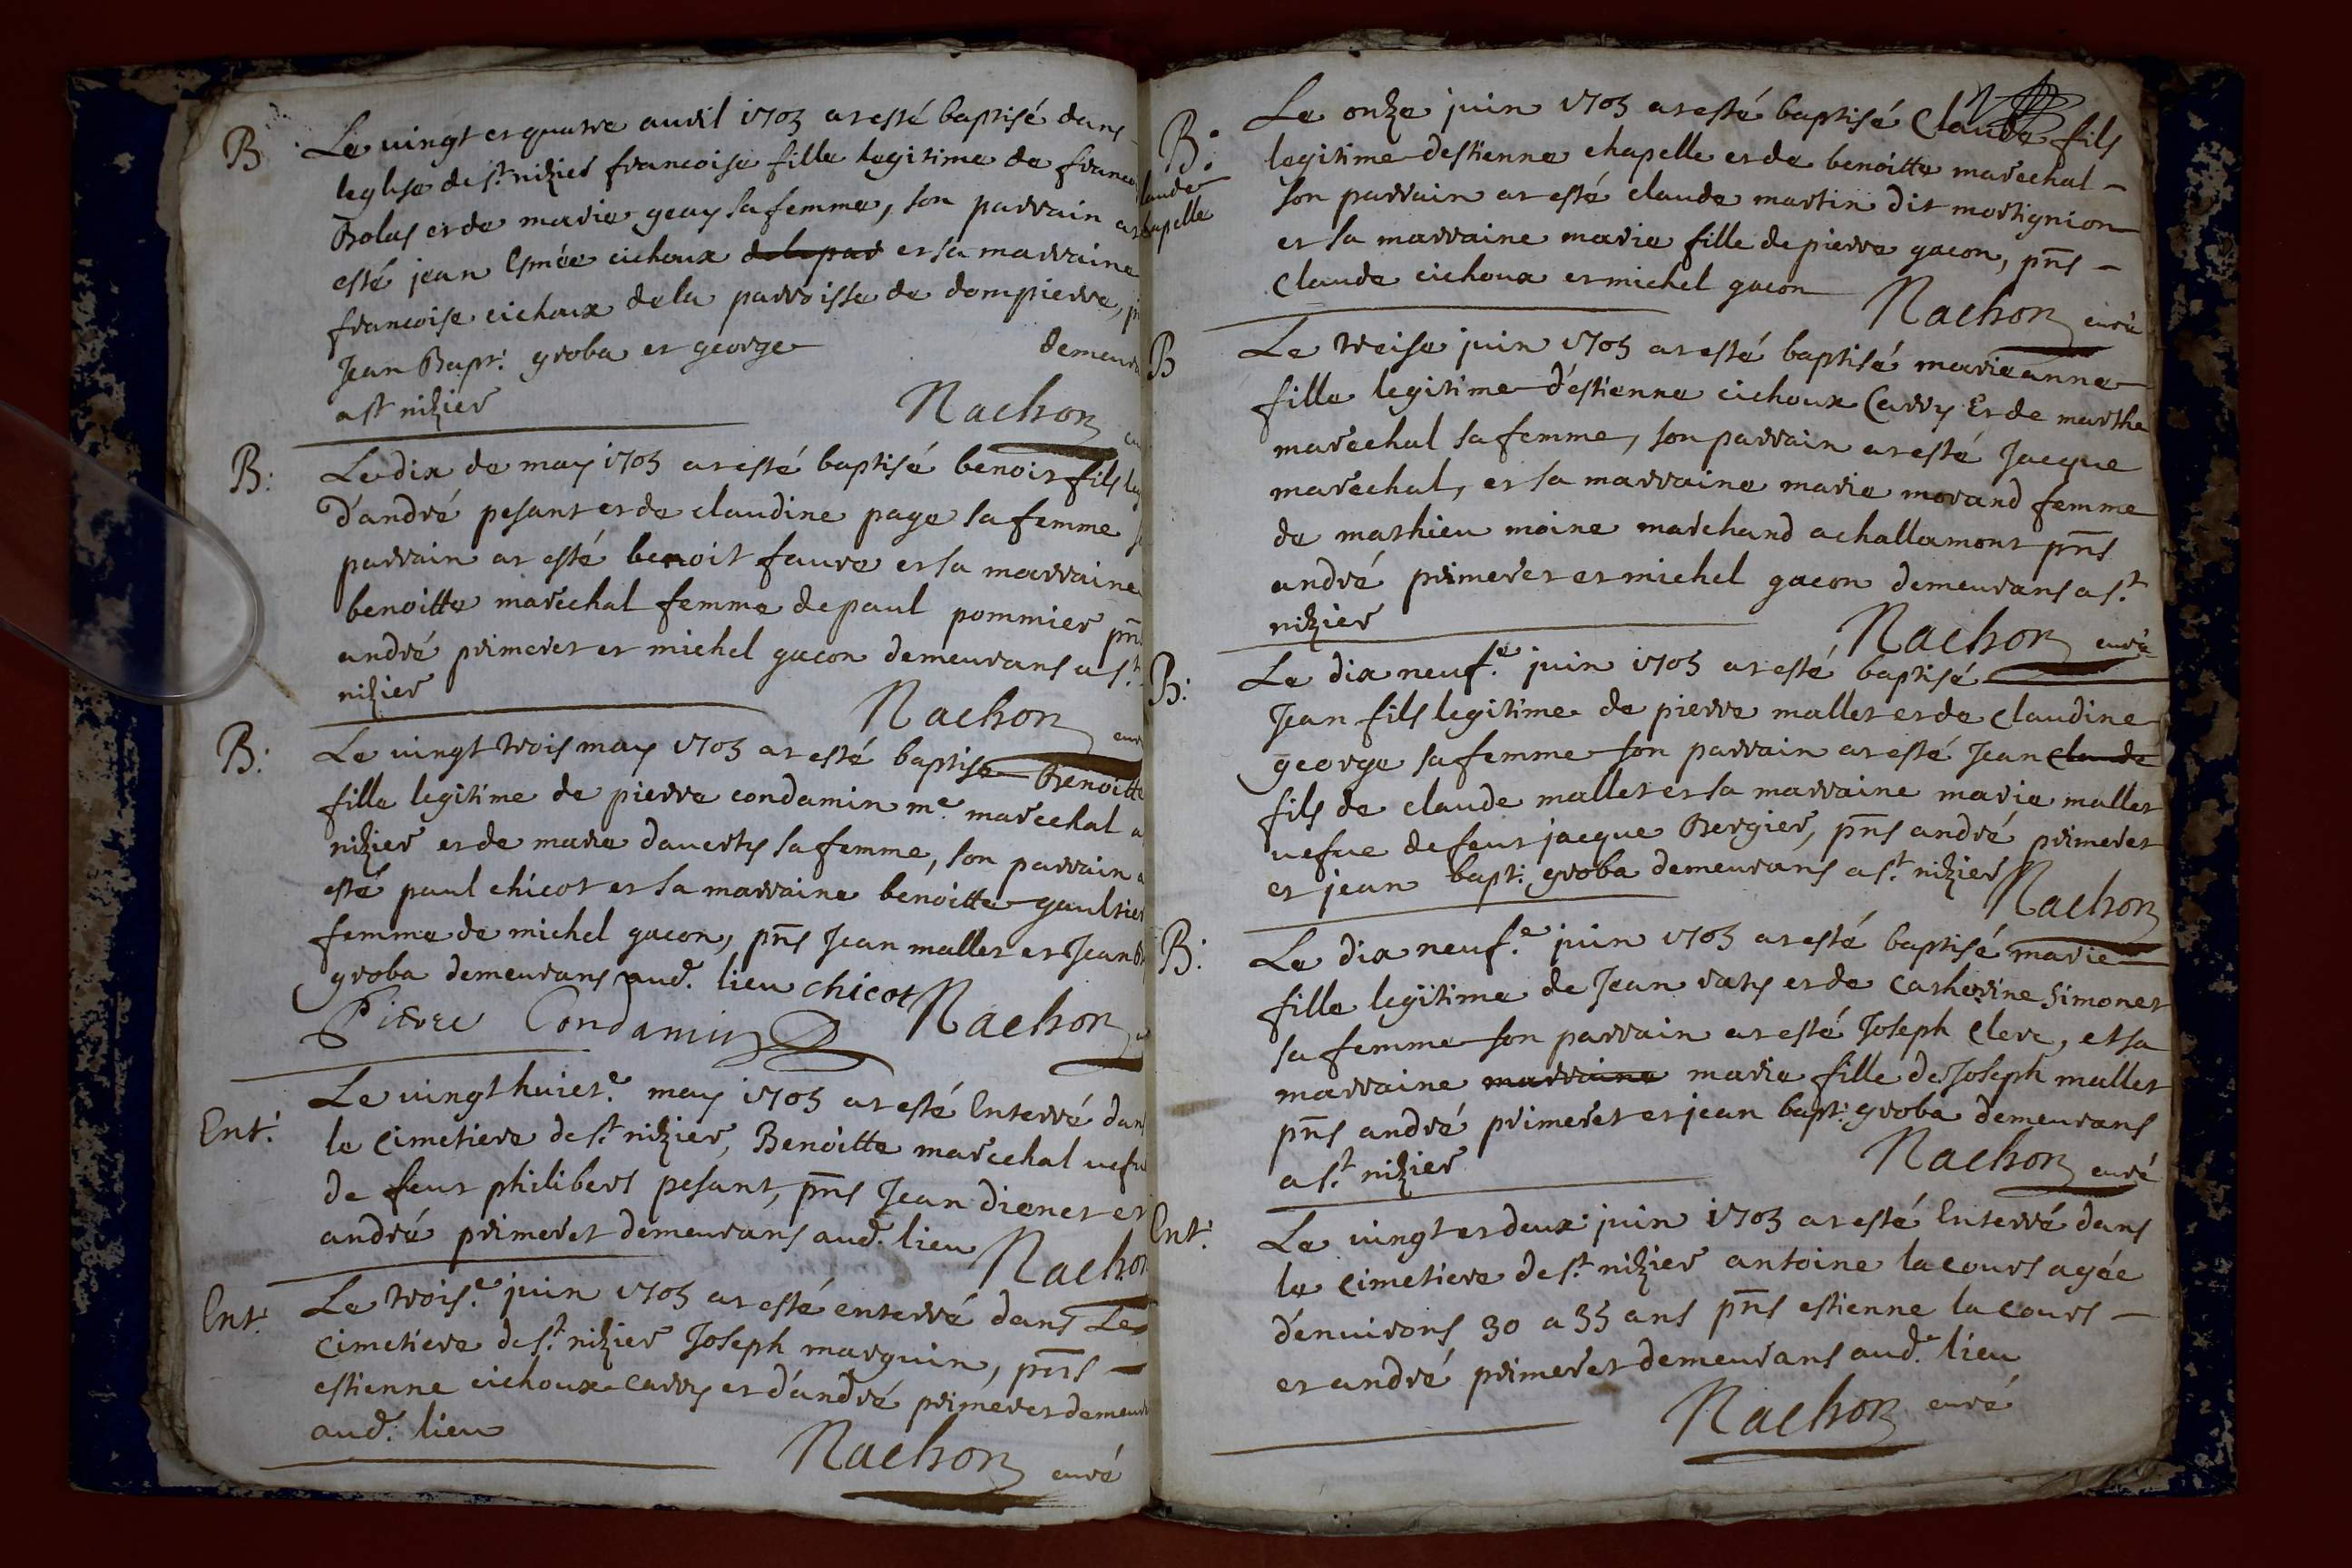 B
Le vingt et quatre auril 1705 at esté baptisé dans
leglise de st. nizier francoise fille legitime de franco
Bolas et de marie geay sa femme, son parrain at
esté jean Esmée cichoux et sa marraine
francoise cichoux dela parroisse de dompierre,
Jean Bapt: groba et george demeur
a st nizier
Rachon
B:
Le dix de may 1705 at esté baptisé benoit fils
d'andré pesant et de claudine page sa femme
parrain at esté benoit faure et sa marraine
benoitte marechal femme de paul pommier pns
andré primeret et michel gacon demeurans a st.
nizier
Rachon
B:
Le vingt trois may 1705 at esté baptisé Benoitte
fille legitime de pierre condamin me. marechal a
nizier et de marie dauerty sa femme, son parrain
esté paul chicot et sa marraine benoitte gaultier
femme de michel gacon, pns Jean mallet et Jean B
groba demeurans aud. lieu chicot Rachon
Pierre Condamin
Ent:
Le vingt huict.e may 1705 at esté Enterré dans
le cimetiere de st. nizier, Benoitte marechal uefue
de feut philibert pesant, pns Jean dionet et
andré primeret demeurans aud. lieu Rachon
Ent:
Le trois.e juin 1705 at esté enterré dans Le
cimetiere de st. nizier Joseph marguin, pns
estienne cichoux carry et d'andré primeret demeur
aud. lieu
Rachon curé
B:
Claude
Chapelle
Le onze juin 1705 at esté baptisé Claude fils
legitime d'estienne chapelle et de benoitte marechal
son parrain at esté claude martin dit mortignion
et sa marraine marie fille de pierre gacon, pns
Claude cichoux et michel gacon Rachon curé
B
Le treise juin 1705 at esté baptisé marieanne
fille legitime d'estienne cichoux Carry Et de marthe
marechal sa femme, son parrain at esté Jacque
marechal, et sa marraine marie morand femme
de mathieu moine marchand a challamont pns
andré primeret et michel gacon demeurans a st.
nizier
Rachon curé
B:
Le dix neuf.e juin 1705 at esté baptisé
Jean fils legitime de pierre mallet et de claudine
george sa femme son parrain at esté Jean claude
fils de claude mallet et sa marraine marie mallet
uefue de feut jacque Bergier, pns andré primeret
et jean bapt: groba demeurans a st. nizier Rachon
B:
Le dix neuf.e juin 1705 at esté baptisé marie
fille legitime de Jean raty et de catherine simonet
sa femme son parrain at esté Joseph Clerc, et sa
marraine marraine marie fille de Joseph mallet
pns andré primeret et jean bapt: groba demeurans
a st. nizier
Rachon curé
Ent:
Le vingt et deux juin 1705 at esté Enterré dans
le cimetiere de st. nizier antoine lacourt agée
d'enuirons 30 a 35 ans pns estienne lacourt
et andré primeret demeurans aud. lieu
Rachon curé